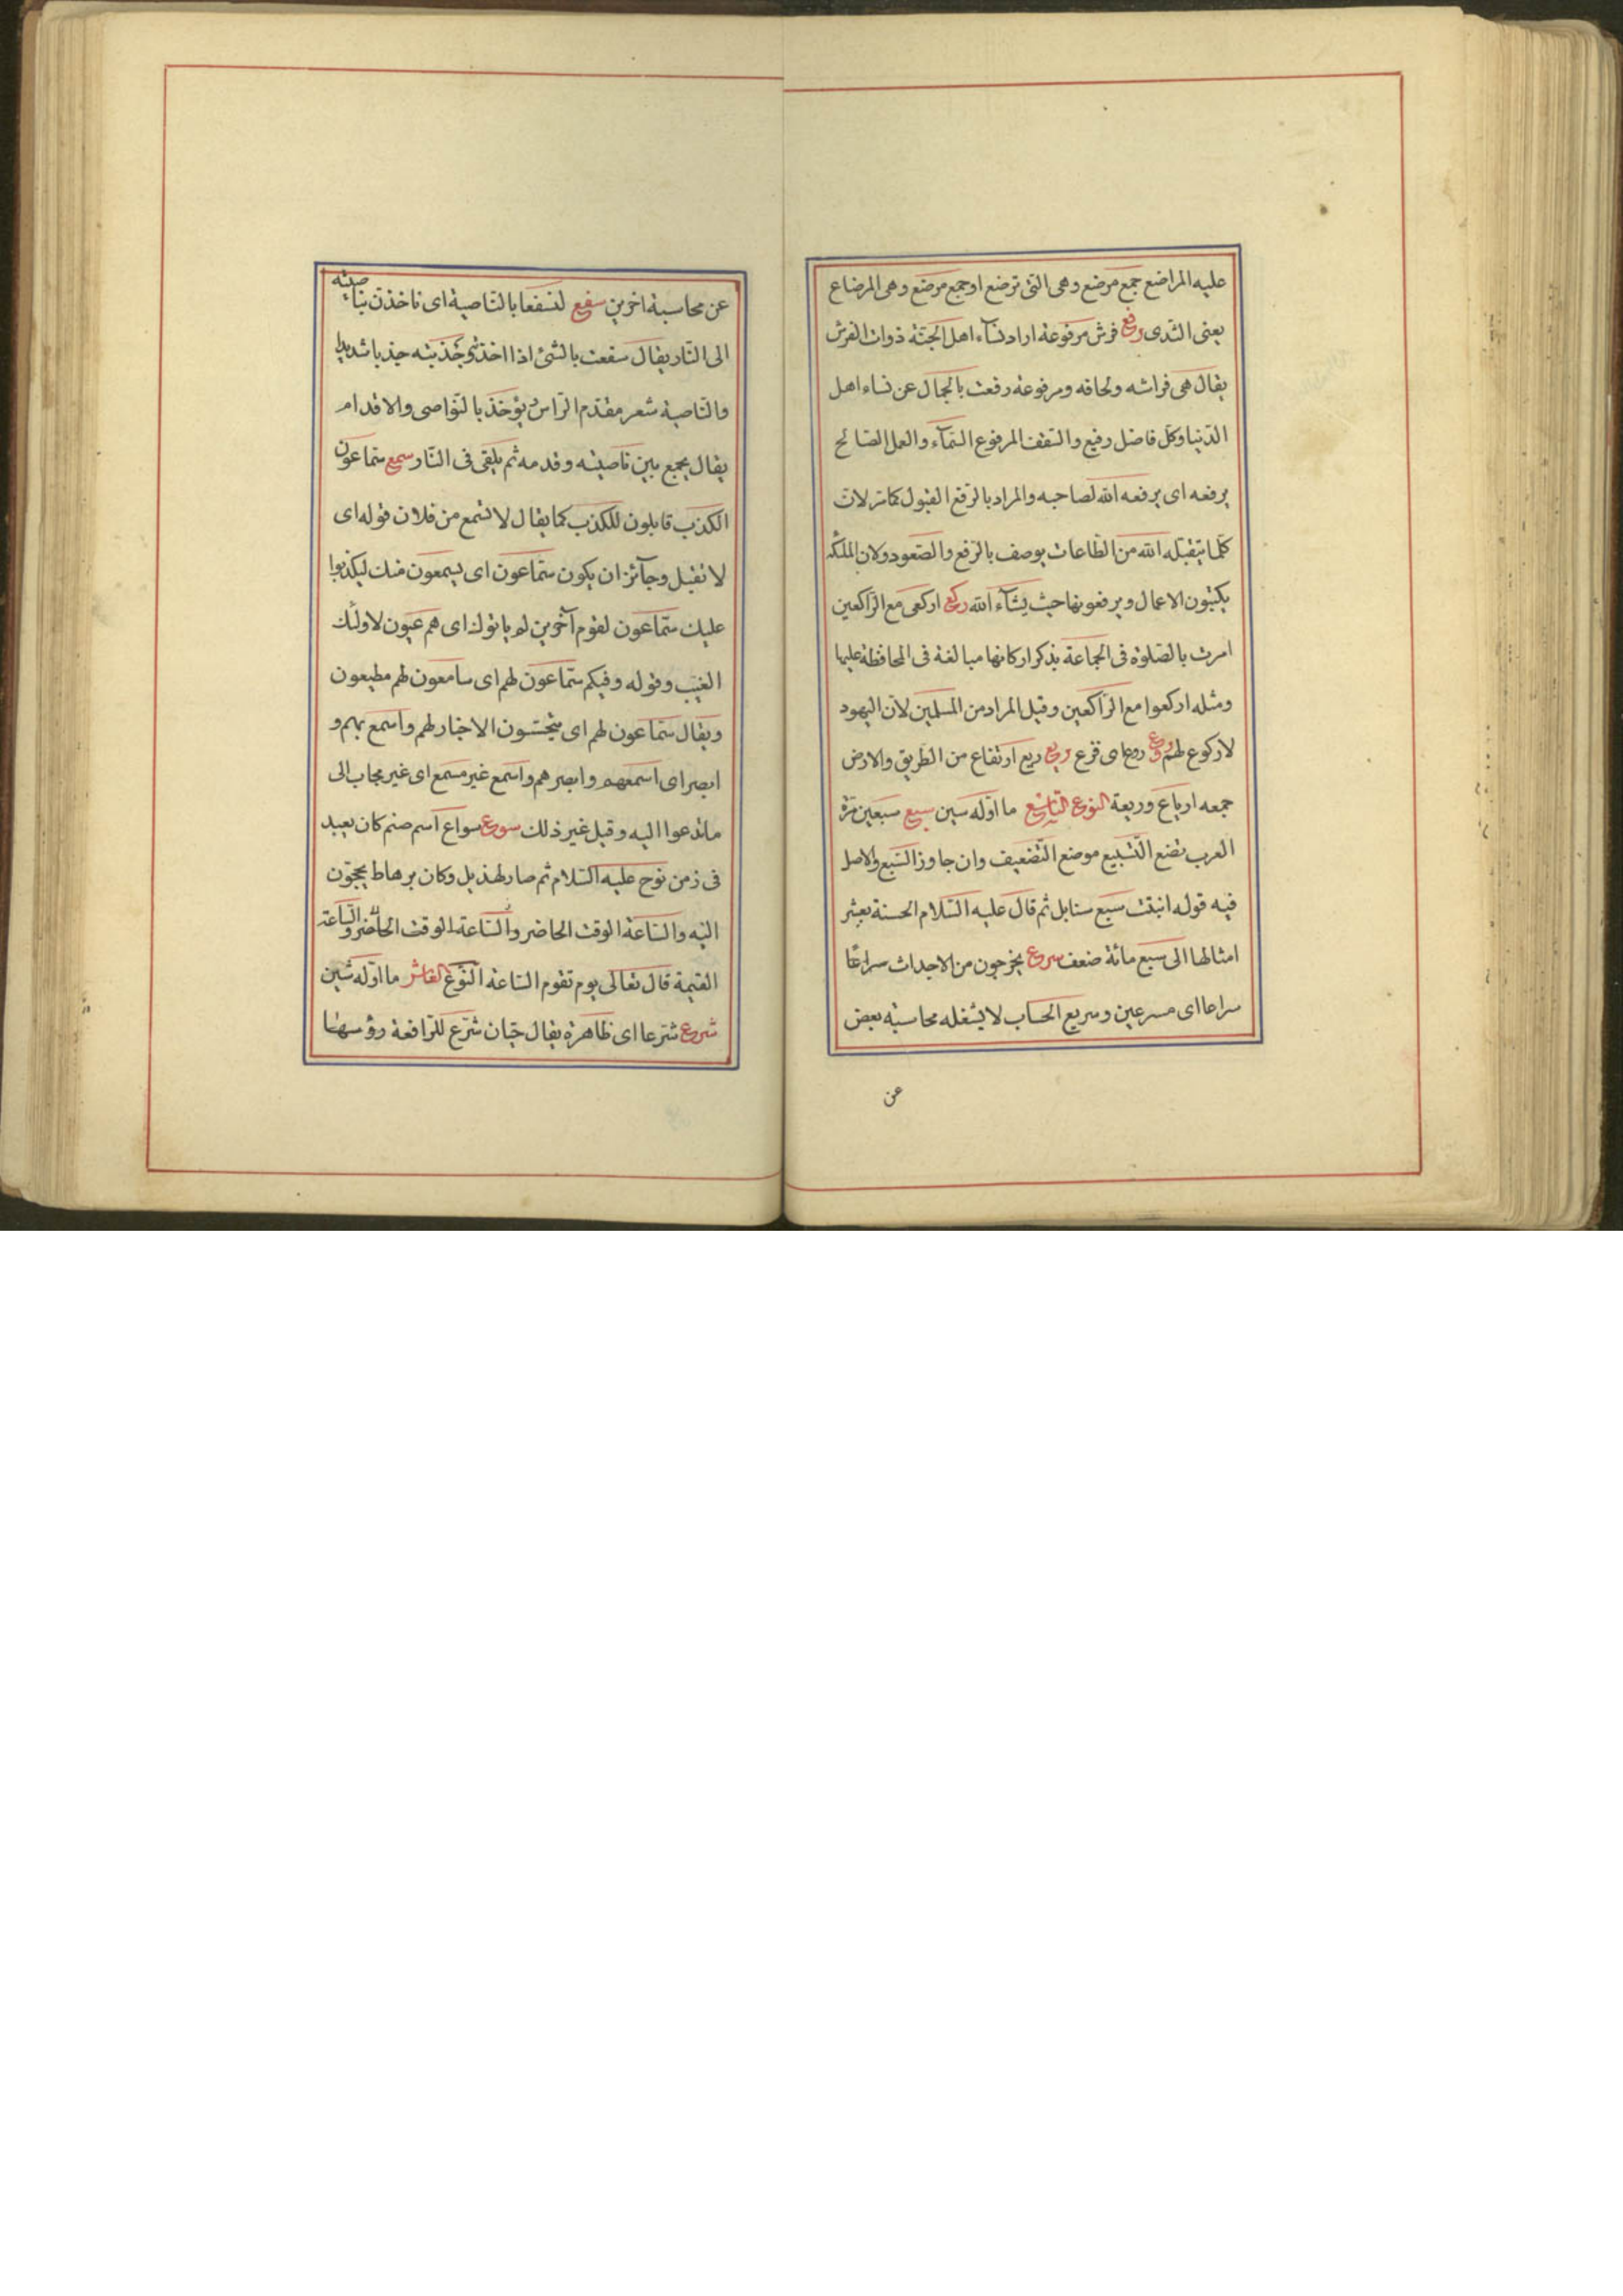 عليه المراضع جمع مرضع وهى التى ترضع او جمع مرضع وهى المرضاع
يعنى الثدى رفع فرش مرفوعة اراد نسآء اهل الجنة ذوات الفرش
يقال هى فراشه ولحافه ومرفوعة رفعت بالجمال عن نساء اهل
الدنيا وكل فاضل رفيع والسقف المرفوع السمآء والعمل الصالح
يرفعه اى يرفعه الله لصاحبه والمراد بالرفع القبول كما مر لان
كلما يتقبله الله من الطاعات يوصف بالرفع والصعود ولان الملئكة
يكتبون الاعمال ويرفعونها حيث يشآء الله ركع اركعى مع الراكعين
امرت بالصلوة فى الجماعة بذكر اركانها مبالغة فى المحافظة عليها
ومثله اركعوا مع الراكعين وقيل المراد من المسلمين لان اليهود
لا ركوع لهم روع روع اى فزع ريع ريع ارتفاع من الطريق والارض
جمعه ارباع وريعة النوع التاسع ما اوله سين سبع سبعين مرة
العرب تضع التسبيع موضع التضعيف وان جاوز السبع والاصل
فيه قوله انبتت سبع سنابل ثم قال عليه السلام الحسنة بعشر
امثالها الى سبع مائة ضعف سرع يخرجون من الاجداث سراعًا
سراعا اى مسرعين وسريع الحساب لا يشغله محاسبة بعض
عن
عن محاسبة اخرين سفع لنسفعا بالناصية اى ناخذن بناصيته
الى النار يقال سفعت بالشئ اذا اخذته وجذبته جذبا شديدا
والناصية شعر مقدم الراس ويؤخذ بالنواصى والاقدام
يقال يجمع بين ناصيته وقدمه ثم يلقى فى النار سمع سماعون
الكذب قابلون للكذب كما يقال لا تسمع من فلان قوله اى
لا تقبل وجآئز ان يكون سماعون اى يسمعون منك ليكذبوا
عليك سماعون لقوم آخرين لم ياتوك اى هم عيون لاولئك
الغيب وقوله وفيكم سماعون لهم اى سامعون لهم مطيعون
ويقال سماعون لهم اى يتجسسون الاخبار لهم واسمع بهم و
ابصر اى اسمعهم وابصرهم واسمع غير مسمع اى غير مجاب الى
ما تدعوا اليه وقيل غير ذلك سوع سواع اسم صنم كان يعبد
فى زمن نوح عليه السلام ثم صار لهذيل وكان برهاط يحجون
اليه والساعة الوقت الحاضر والساعة الوقت الحاضر والساعة
القيمة قال تعالى يوم تقوم الساعة النوع العاشر ما اوله شين
شرع شرعا اى ظاهرة يقال حيتان شرع للرافعة رؤسها